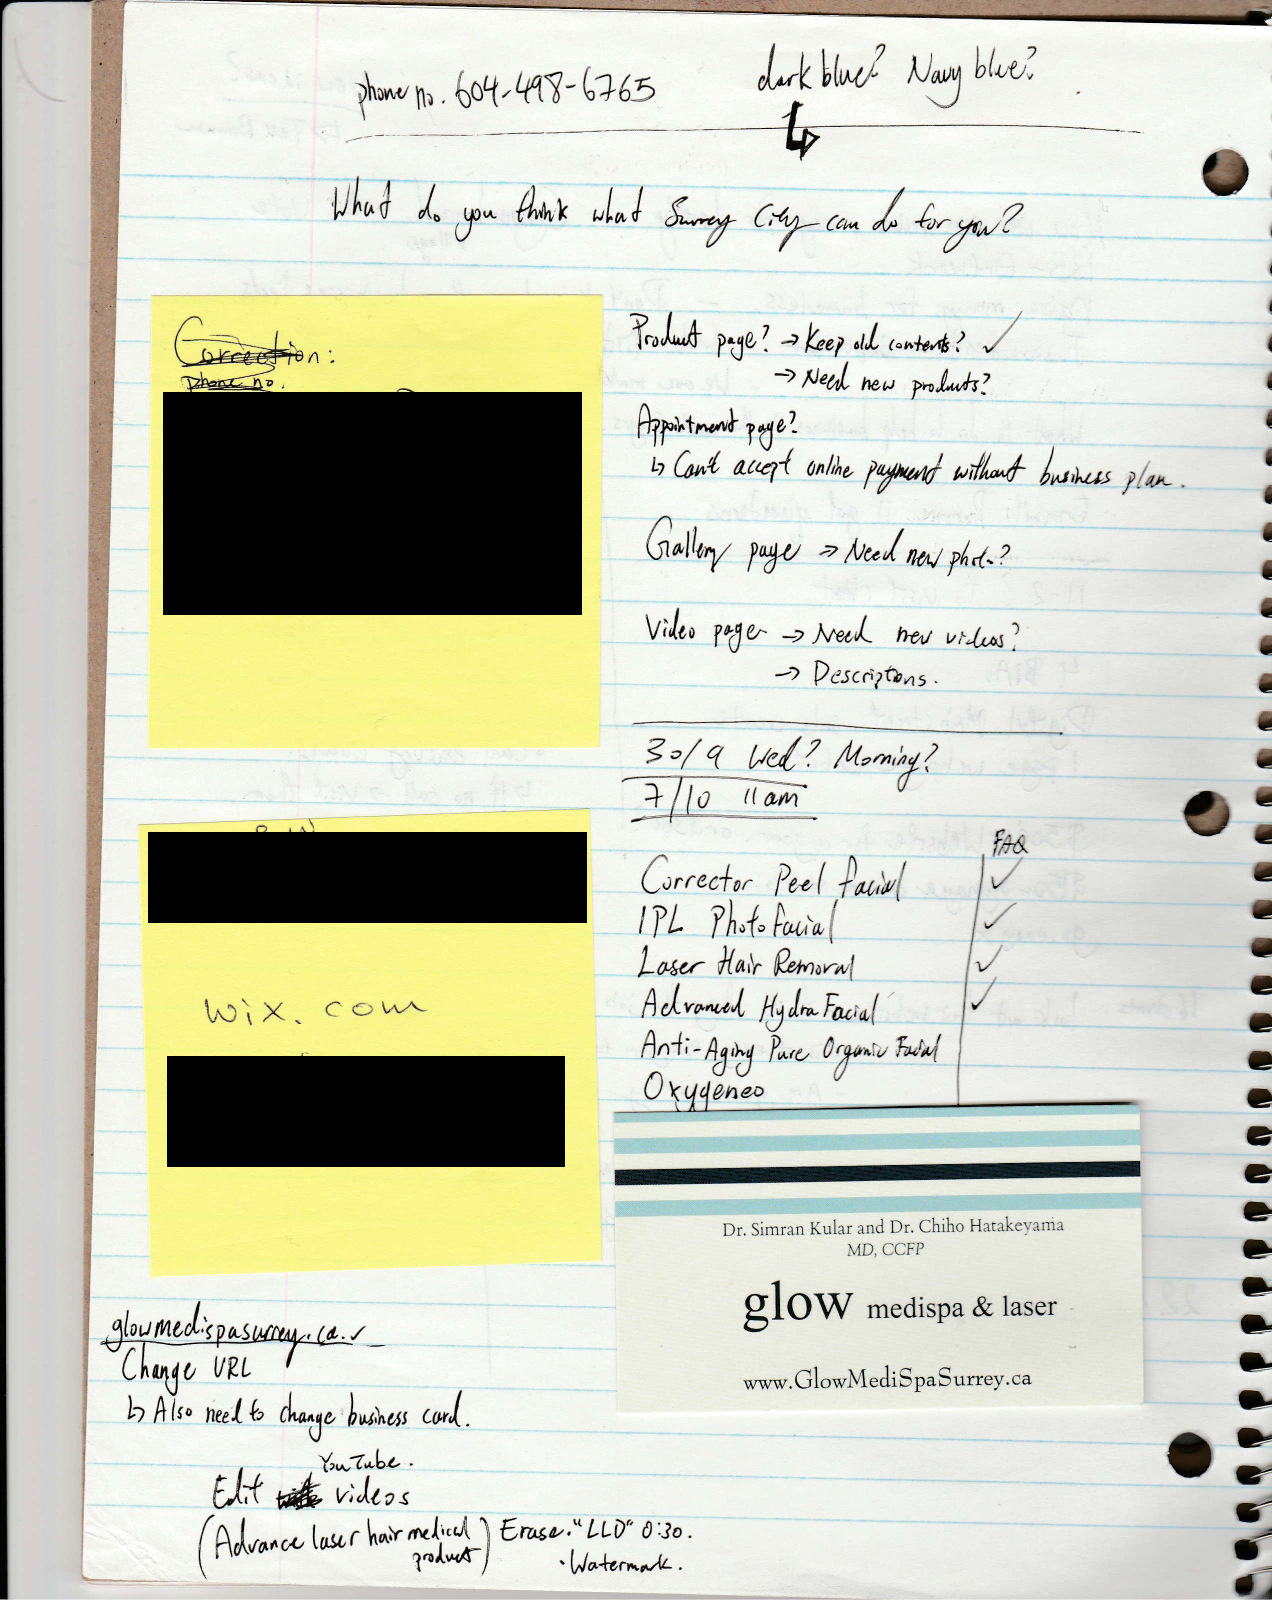 phone no. 604-498-6765
dark blue? Navy blue?
What do you think what Surrey City can do for you?
Correction:
phone no.
Product page? → Keep old contents? ✓
→ Need new products?
Appointment page?
↳ Can't accept online payment without business plan.
Gallery page → Need new photo?
Video page → Need new videos?
→ Descriptions.
30/9 Wed? Morning?
7/10 11am
FAQ
Corrector Peel facial ✓
IPL PhotoFacial ✓
Laser Hair Removal ✓
Advanced HydraFacial ✓
Anti-Aging Pure Organic Facial
Oxygeneo
wix.com
Dr. Simran Kular and Dr. Chiho Hatakeyama
MD, CCFP
glow medispa & laser
www.GlowMediSpaSurrey.ca
glowmedispasurrey.ca. ✓
Change URL
↳ Also need to change business card.
YouTube.
Edit videos
(Advance laser hair medical product) Erase. "LLD" 0:30.
· Watermark.